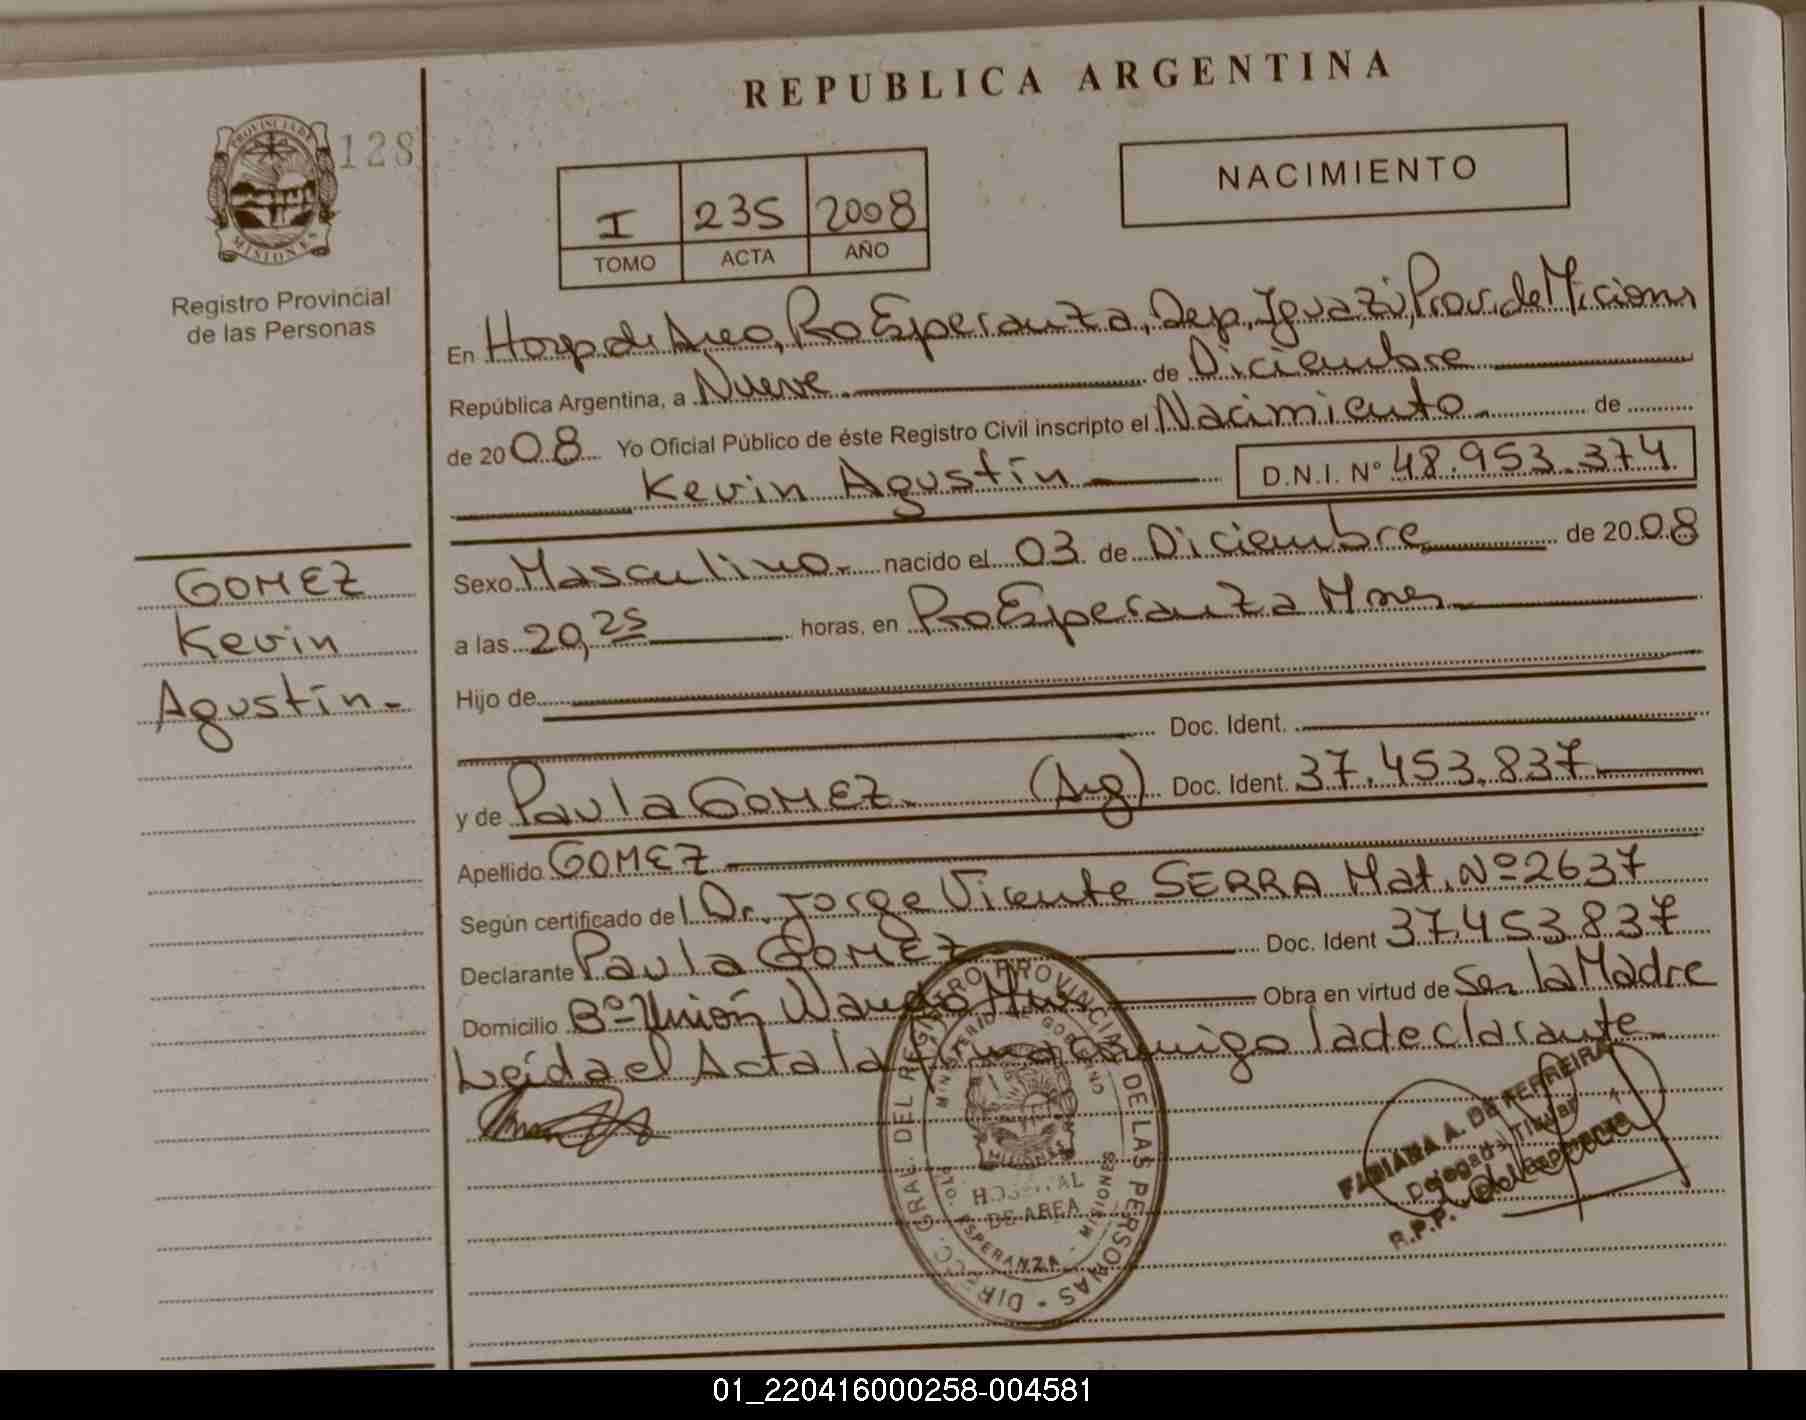 REPUBLICA ARGENTINA
PROVINCIA DE MISIONES
128
Registro Provincial
de las Personas
I 235 2008
TOMO ACTA AÑO
NACIMIENTO
En Hosp. de Area, Pto Esperanza, Dep. Iguazú, Prov. de Misiones
República Argentina, a Nueve de Diciembre
de 2008 Yo Oficial Público de éste Registro Civil inscripto el Nacimiento. de
Kevin Agustín D.N.I. Nº 48.953.374
GOMEZ
Kevin
Agustín-
Sexo Masculino.- nacido el 03 de Diciembre de 2008
a las 20,25 horas, en Pto Esperanza Mnes
Hijo de
Doc. Ident.
y de Paula GOMEZ. (Arg) Doc. Ident. 37.453.837
Apellido GOMEZ
Según certificado del Dr. Jorge Vicente SERRA Mat. Nº 2637
Declarante Paula GOMEZ Doc. Ident 37.453.837
Domicilio Bº Unión Wanda Mnes Obra en virtud de Ser la Madre
Leída el Acta la firma conmigo la declarante
DIRECC. GRAL. DEL REGISTRO PROVINCIAL DE LAS PERSONAS -
MINISTERIO DE GOBIERNO
MISIONES
HOSPITAL
DE AREA
PTO. ESPERANZA - MISIONES
FABIANA A. DE FERREIRA
Delegada Titular
R.P.P.
01_220416000258-004581